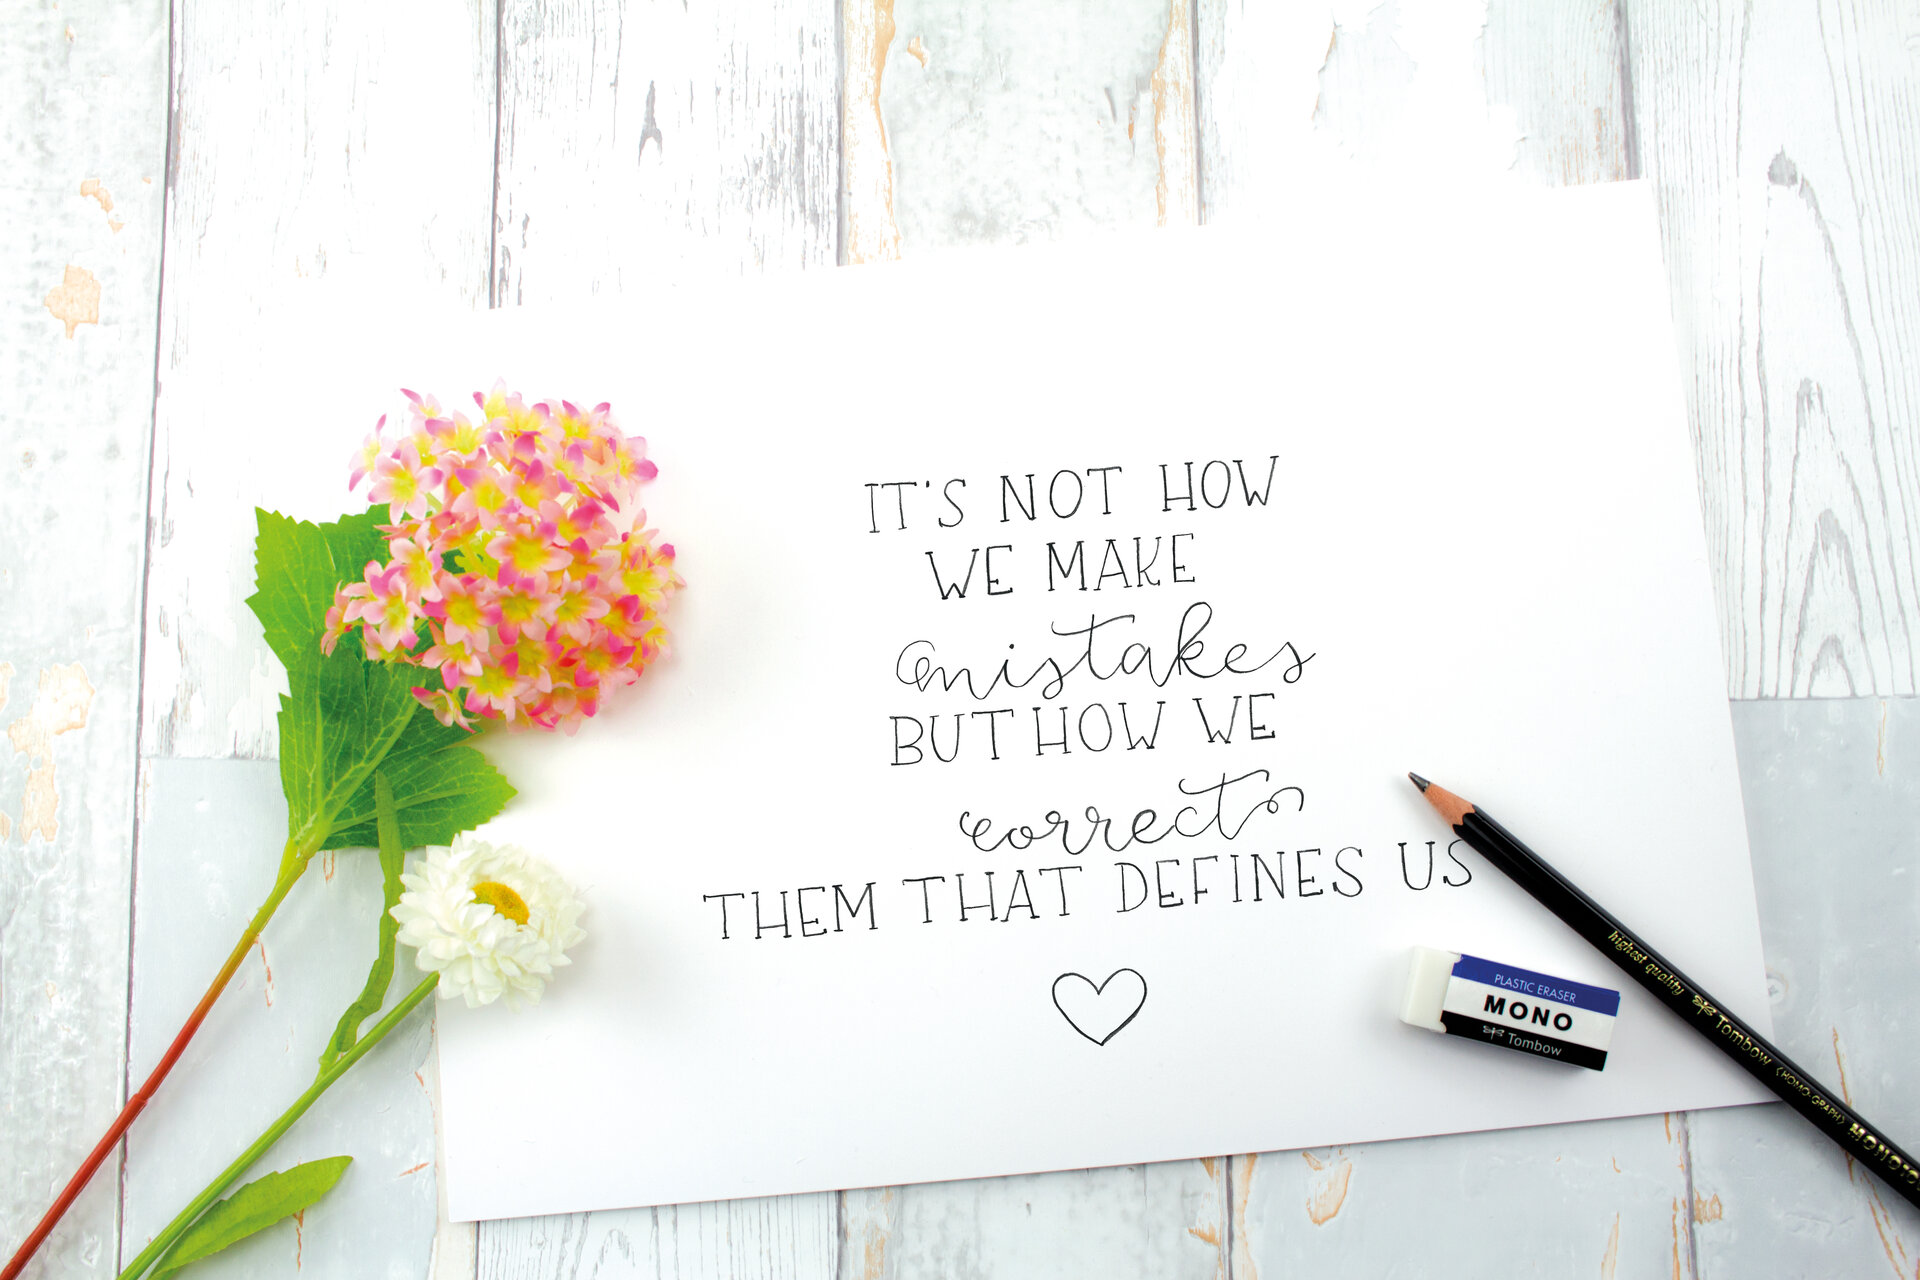 IT'S NOT HOW
WE MAKE
mistakes
BUT HOW WE
correct
THEM THAT DEFINES US
PLASTIC ERASER
MONO
Tombow
highest quality Tombow (HOMO-GRAPH)